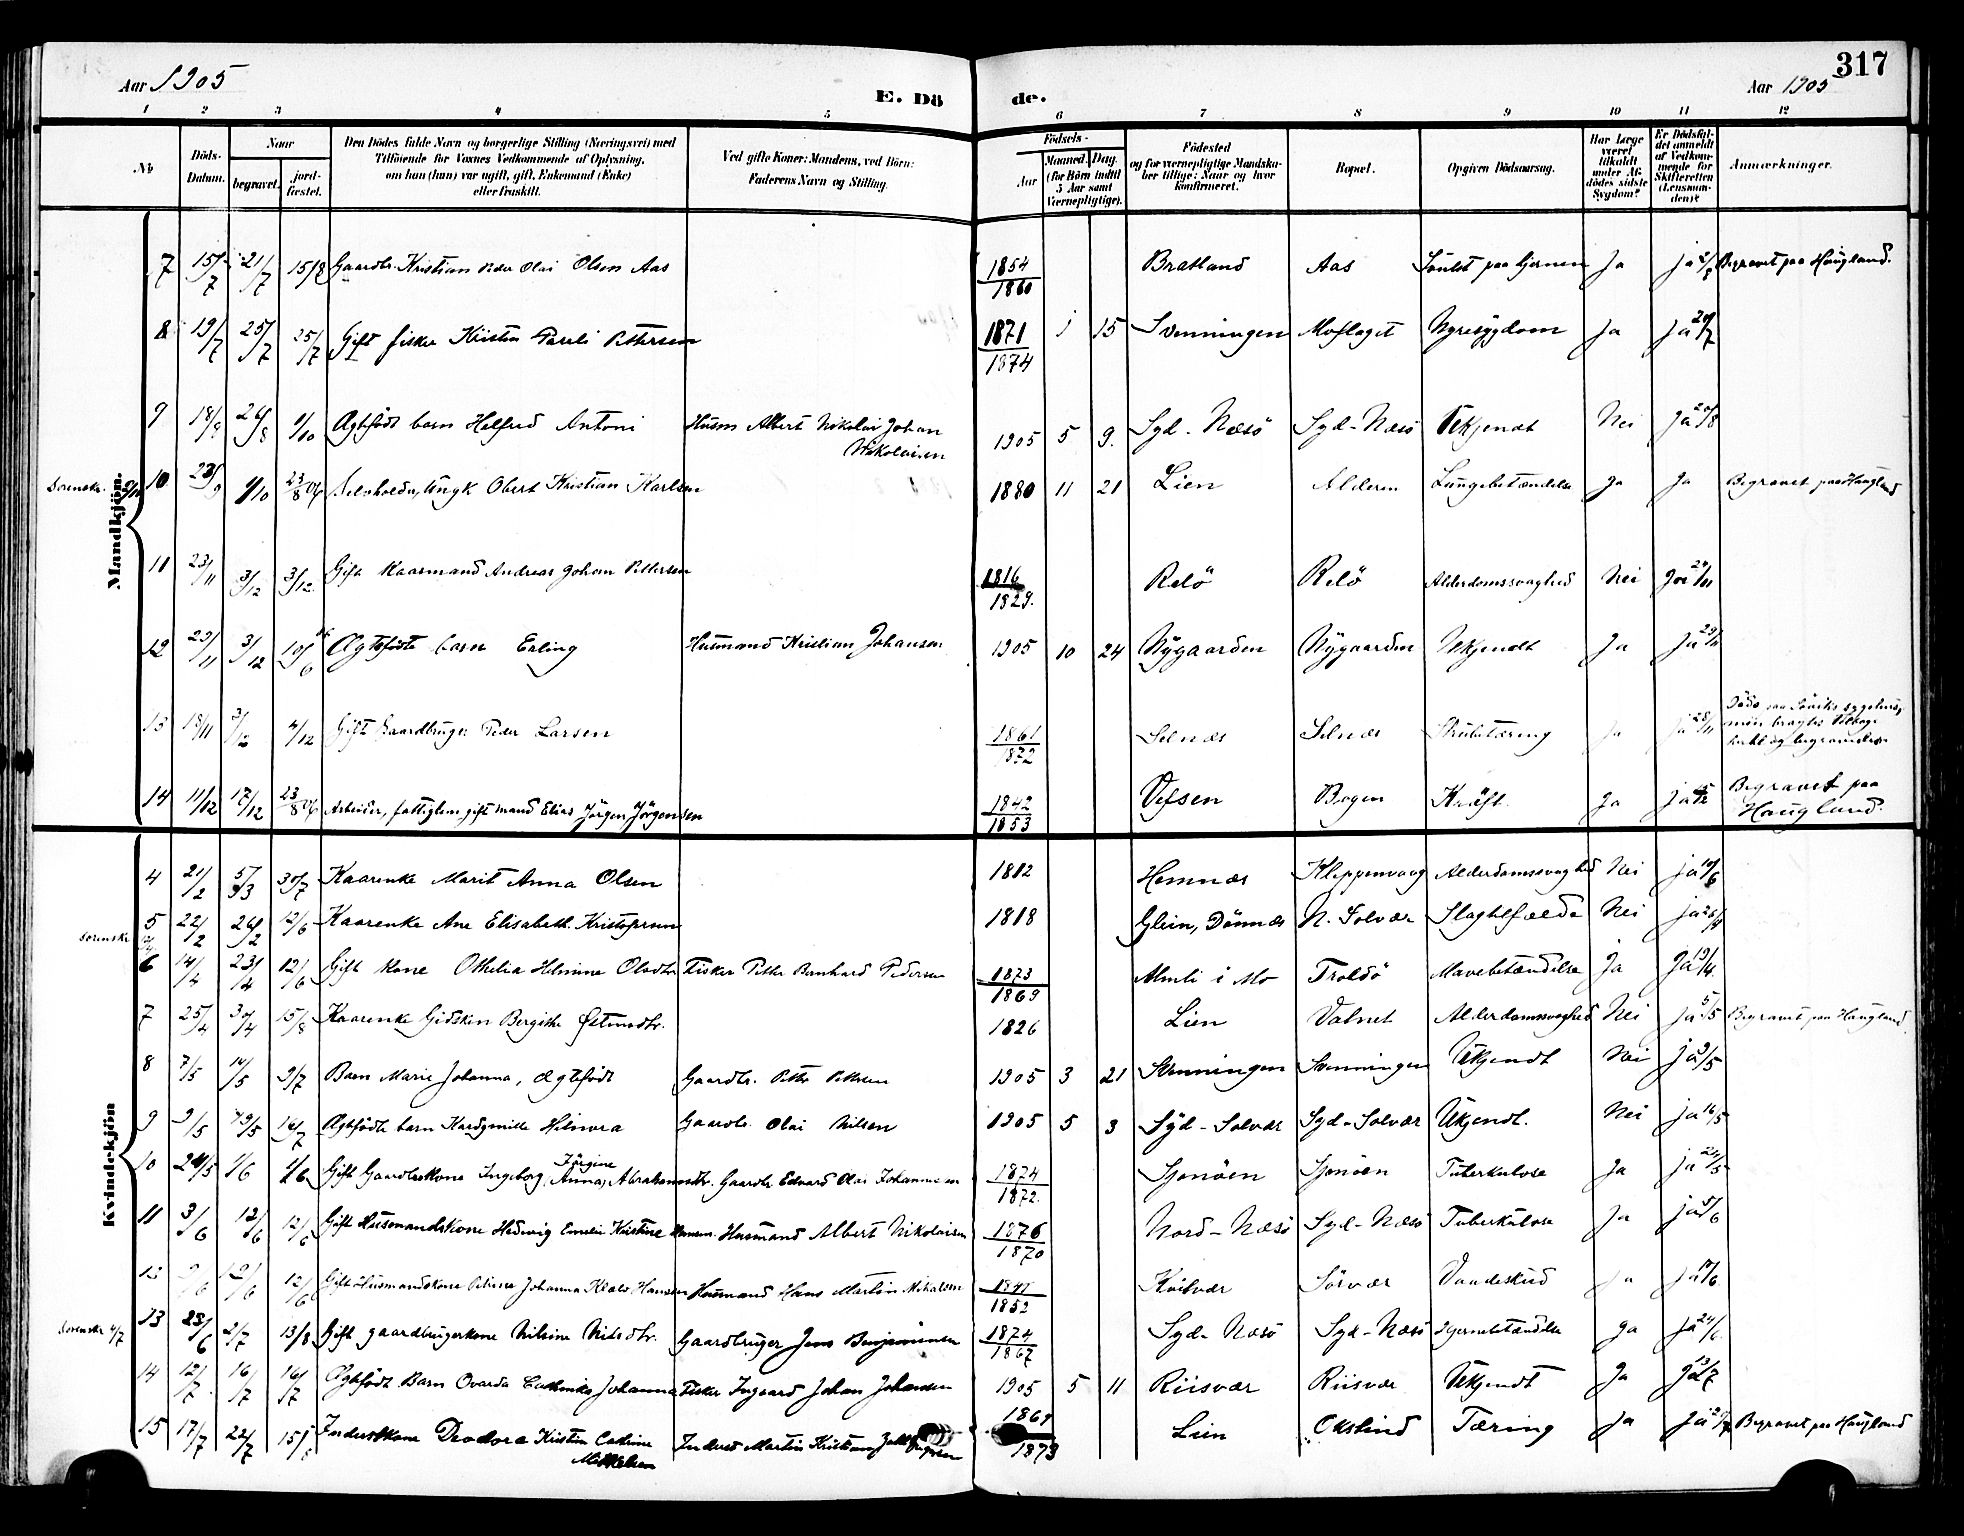 317
Aar 1905
E. Dö de.
Aar 1905
1 2 3 4 5 6 7 8 9 10 11 12
No
Döds-Datum.
Naar
begravet.
jord-fæstet.
Den Dödes fulde Navn og borgerlige Stilling (Næringsvei) med
Tilföiende for Voxnes Vedkommende af Oplysning,
om han (hun) var ugift, gift, Enkemand (Enke)
eller fraskilt.
Ved gifte Koner: Mandens, ved Börn:
Faderens Navn og Stilling.
Födsels-
Aar
Maaned. Dag.
(for Börn indtil
5 Aar samt
Værnepligtige).
Födested
og for værnepligtige Mandska-
ber tillige: Naar og hvor
konfirmeret.
Bopæl.
Opgiven Dödsaarsag.
Har Læge
været
tilkaldt
under Af-
dödes sidste
Sygdom?
Er Dödsfal-
det anmeldt
af Vedkom-
mende for
Skifteretten
(Lensman-
den)?
Anmærkninger.
Mandkjön.
7 15/7 21/7 15/8 Gaardbr. Kristian Peder Olai Olsen Aas 1854/1860 Bratland Aas Ja ja Begravet paa Haugland.
8 19/7 25/7 25/7 Gift fisker Kristen Pareli Pettersen 1871/1874 1 15 Svenningen Moflaget Nyresygdom Ja Ja 20/7
9 18/9 1/10 Ægtefödt barn Helfred Antoni Husm Albert Nikolai Johan
Nikolaisen 1905 5 9. Syd-Næsö Syd-Næsö Ukjendt Nei Ja
Sorenskr. 10 1/10 23/8 06 Selvholden, Ungk Obert Kristian Karlsen 1880 11 21 Lien Alderen Lungebetændelse Ja Ja Begravet paa Haugland
11 23/11 3/12 3/12. Gift Kaarmand Andreas Johan Pettersen 1816/1829. Relö Relö Alderdomssvaghed Nei Ja 24/11
12 23/11 3/12 10/6 06 Ægtefödte barn Erling Husmand Kristian Johansen 1905 10 24 Nygaarden Nygaarden Ukjendt Ja Ja 29/11
13 18/11 3/12 4/12 Gift Gaardbruger Peder Larsen 1861/1872 Selnæs Selnæs Strubetæring Ja Ja 28/11
14 11/12 17/12 23/8 06 Arbeider, fattiglem, gift mand Elias Jörgen Jörgensen 1842/1853 Vefsen Bogen Kræft. Ja ja Begravet paa
Haugland.
Kvindekjön
4 21/2 5/3 30/7 Kaarenke Marit Anna Olsen 1812 Hemnæs Klippenvaag Alderdomssvaghed Nei ja
Sorenskr 5 22/2 26/2 12/6 Kaarenke Ane Elisabeth Kristofersen 1818 Glein, Dönnæs N. Solvær Slagtilfælde Nei ja
6 14/4 23/4 12/6 Gift Kone Othelia Helmine Olsdtr Fisker Petter Bernhard Pedersen 1873/1869 Almli i Mo Troldö Mavebetændelse Ja Ja 19/4.
7 25/4 30/4 15/8 Kaarenke Gidsken Bergithe 1826 Lien Valnet Alderdomssvaghed Nei Ja 5/5 Begravet paa Haugland
8 7/5 14/5 9/7 Barn Marie Johanna, ægtefödt Gaardbr. Petter Pettersen 1905 3 21 Svenningen Svenningen Ukjendt Nei ja 9/5
9 9/5 16/7 Ægtefödte barn Hilmora Gaardbr. Olai Nilsen 1905 5 3 Syd-Solvær Syd-Solvær Ukjendt. Nei ja 16/5
10 24/5 1/6 1/6 Gift Gaardbrskone Ingeborg Jörgine Anna, Abrahamsdtr. Gaardbr Edvard Olai Johannesen 1874/1872. Sjonöen Sjonöen Tuberkulose Ja ja 24/5
11 3/6 12/6 12/6 Gift Husmandskone Hedevig Emelie Kristine Hansen. Husmand Albert Nikolaisen 1876/1870 Nord-Næsö Syd-Næsö Tuberkulose Ja ja 5/6
12 9/6 12/6 Gift Husmandskone Petrine Johanna Hansen Husmand Hans Martin Mikalsen 1852 Kvitvær Sörvær Vaadeskud Ja ja
Sorenskr 4/7 13 23/6 2/7 13/8 Gift gaardbrugerkone Nilsine Nilsdtr. Gaardbruger Jens Benjaminsen 1874/1867 Syd-Næsö Syd-Næsö Hjernebetændelse Ja Ja
14 12/7 16/7 16/7 Ægtefödt Barn Ovarda Johanna Fisker Ingvard Johan Johansen 1905 5 11 Riisvær Riisvær Ukjendt Ja Ja 13/7
15 17/7 22/7 Inderstkone Deodora Kristin Catrine
Mikkelsen Inderst Martin Kristian 1869/1873 Lien Okslind Tæring Ja Ja Begravet paa Haugland